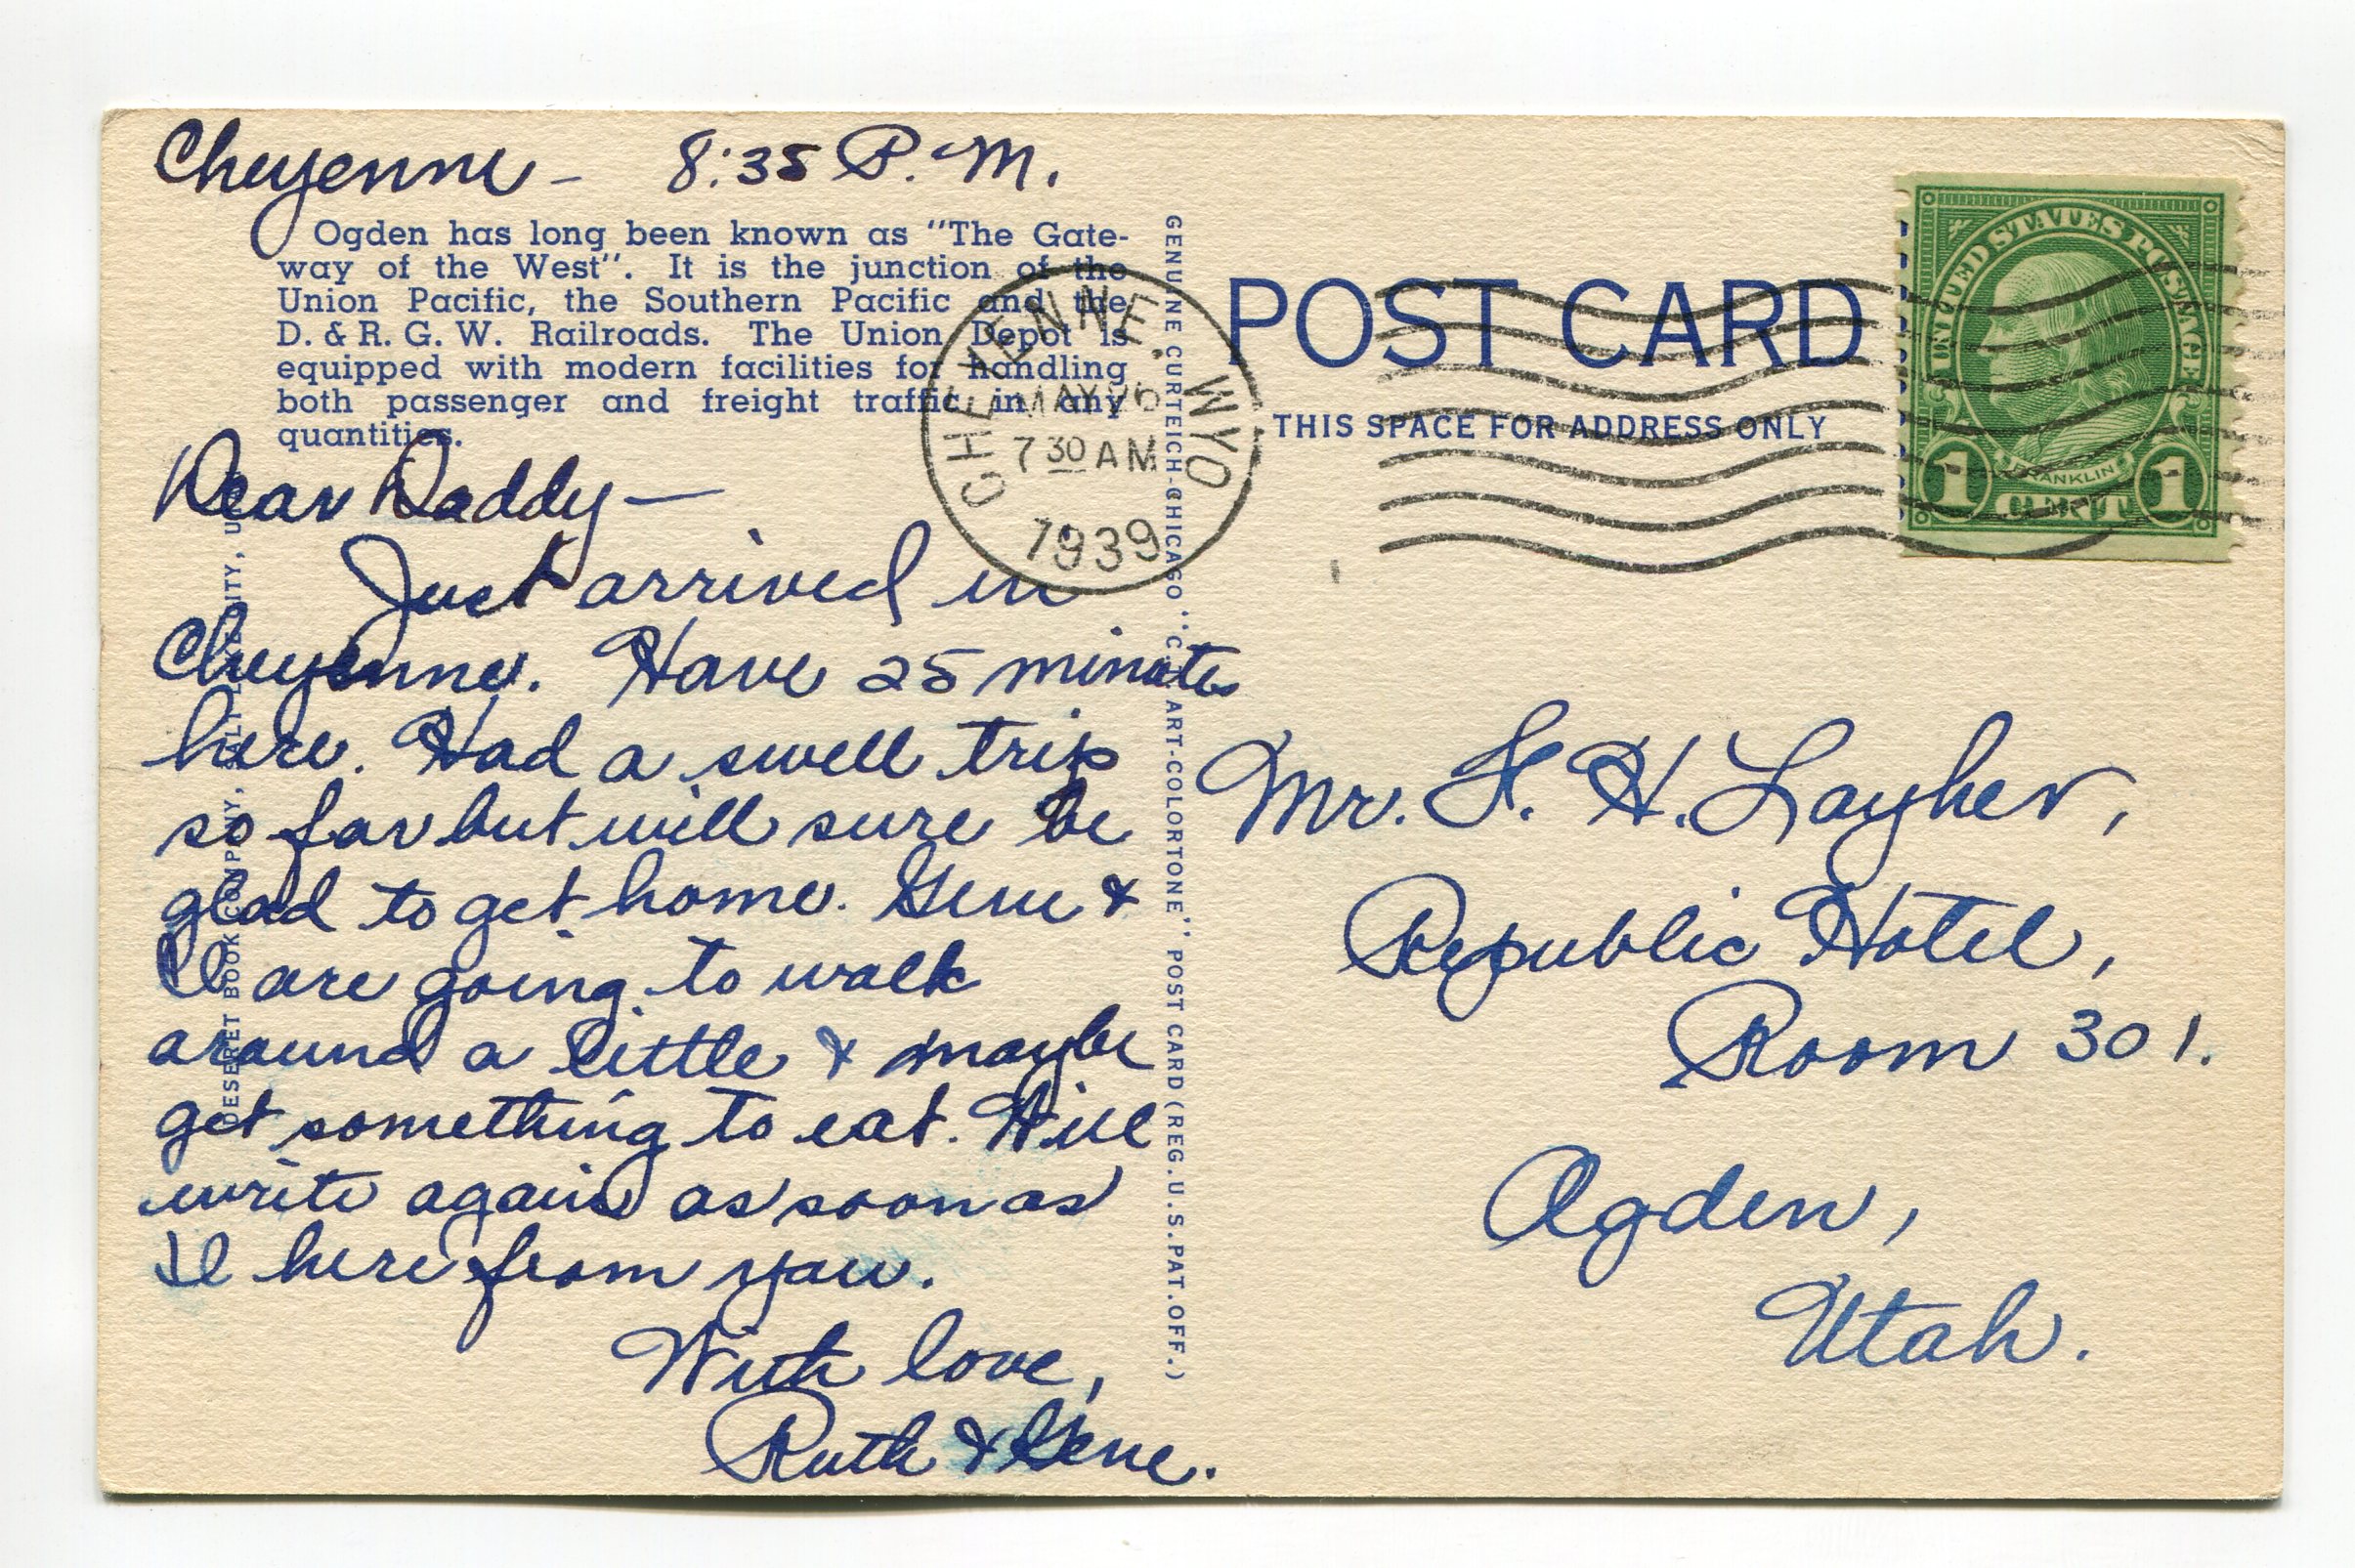 Cheyenne – 8:35 P.M.
Ogden has long been known as "The Gate-
way of the West". It is the junction of the
Union Pacific, the Southern Pacific and the
D. & R. G. W. Railroads. The Union Depot is
equipped with modern facilities for handling
both passenger and freight traffic in any
quantities.
Dear Daddy —
Just arrived in
Cheyenne. Have 25 minutes
here. Had a swell trip
so far but will sure be
glad to get home. Gene &
I are going to walk
around a little & maybe
get something to eat. Will
write again as soon as
I here from you.
With love,
Ruth & Gene.
DESERET BOOK COMPANY,
GENUINE CURTEICH-CHICAGO "C.T. ART-COLORTONE" POST CARD (REG. U.S. PAT. OFF.)
CHEYENNE, WYO
MAY 26
7 30 AM
1939
POST CARD
THIS SPACE FOR ADDRESS ONLY
UNITED STATES POSTAGE
FRANKLIN
1 CENT 1
Mr. H. Layher,
Republic Hotel,
Room 301.
Ogden,
Utah.